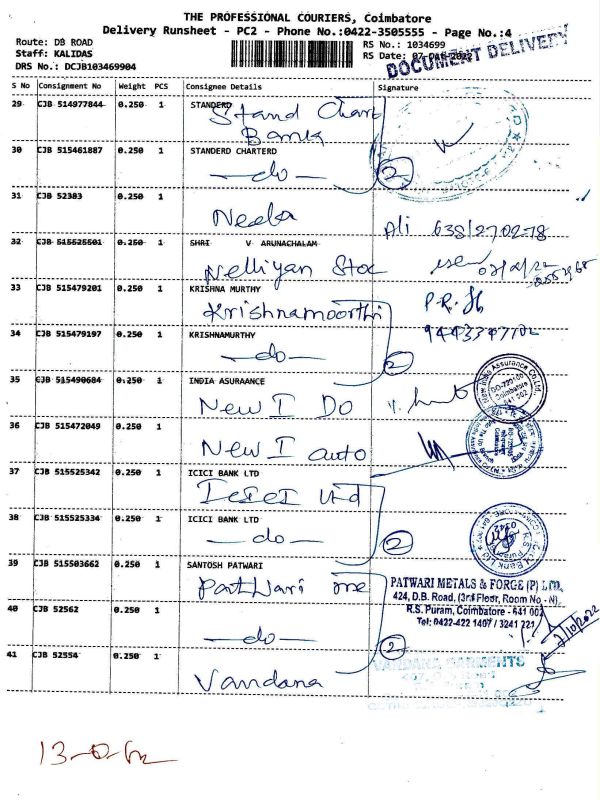 THE PROFESSIONAL COURIERS, Coimbatore
Delivery Runsheet - PC2 - Phone No.:0422-3505555 - Page No.:4
Route: DB ROAD
RS No.: 1034699
Staff: KALIDAS
RS Date: 07-Oct-2022
DRS No.: DCJB103469904
DOCUMENT DELIVERY
S No Consignment No Weight PCS Consignee Details Signature
29 CJB 514977844 0.250 1 STANDERD
Stand Chart
Bank
30 CJB 515461887 0.250 1 STANDERD CHARTERD
-do-
2
31 CJB 52383 0.250 1
Neela
Ali
32 CJB 515525501 0.250 1 SHRI V ARUNACHALAM
Nelliyan Stoc
33 CJB 515479201 0.250 1 KRISHNA MURTHY
Krishnamoorthi
34 CJB 515479197 0.250 1 KRISHNAMURTHY
-do-
2
35 CJB 515490684 0.250 1 INDIA ASURAANCE
New I Do
36 CJB 515472049 0.250 1
New I auto
37 CJB 515525342 0.250 1 ICICI BANK LTD
ICICI Ltd
38 CJB 515525334 0.250 1 ICICI BANK LTD
-do-
2
39 CJB 515503662 0.250 1 SANTOSH PATWARI
Patwari me
PATWARI METALS & FORGE (P) LTD.
424, D.B. Road, (3rd Floor, Room No - N),
R.S. Puram, Coimbatore - 641 002
Tel: 0422-422 1407 / 3241 221
40 CJB 52562 0.250 1
-do-
2
41 CJB 52554 0.250 1
Vandana
VANDANA GARMENTS